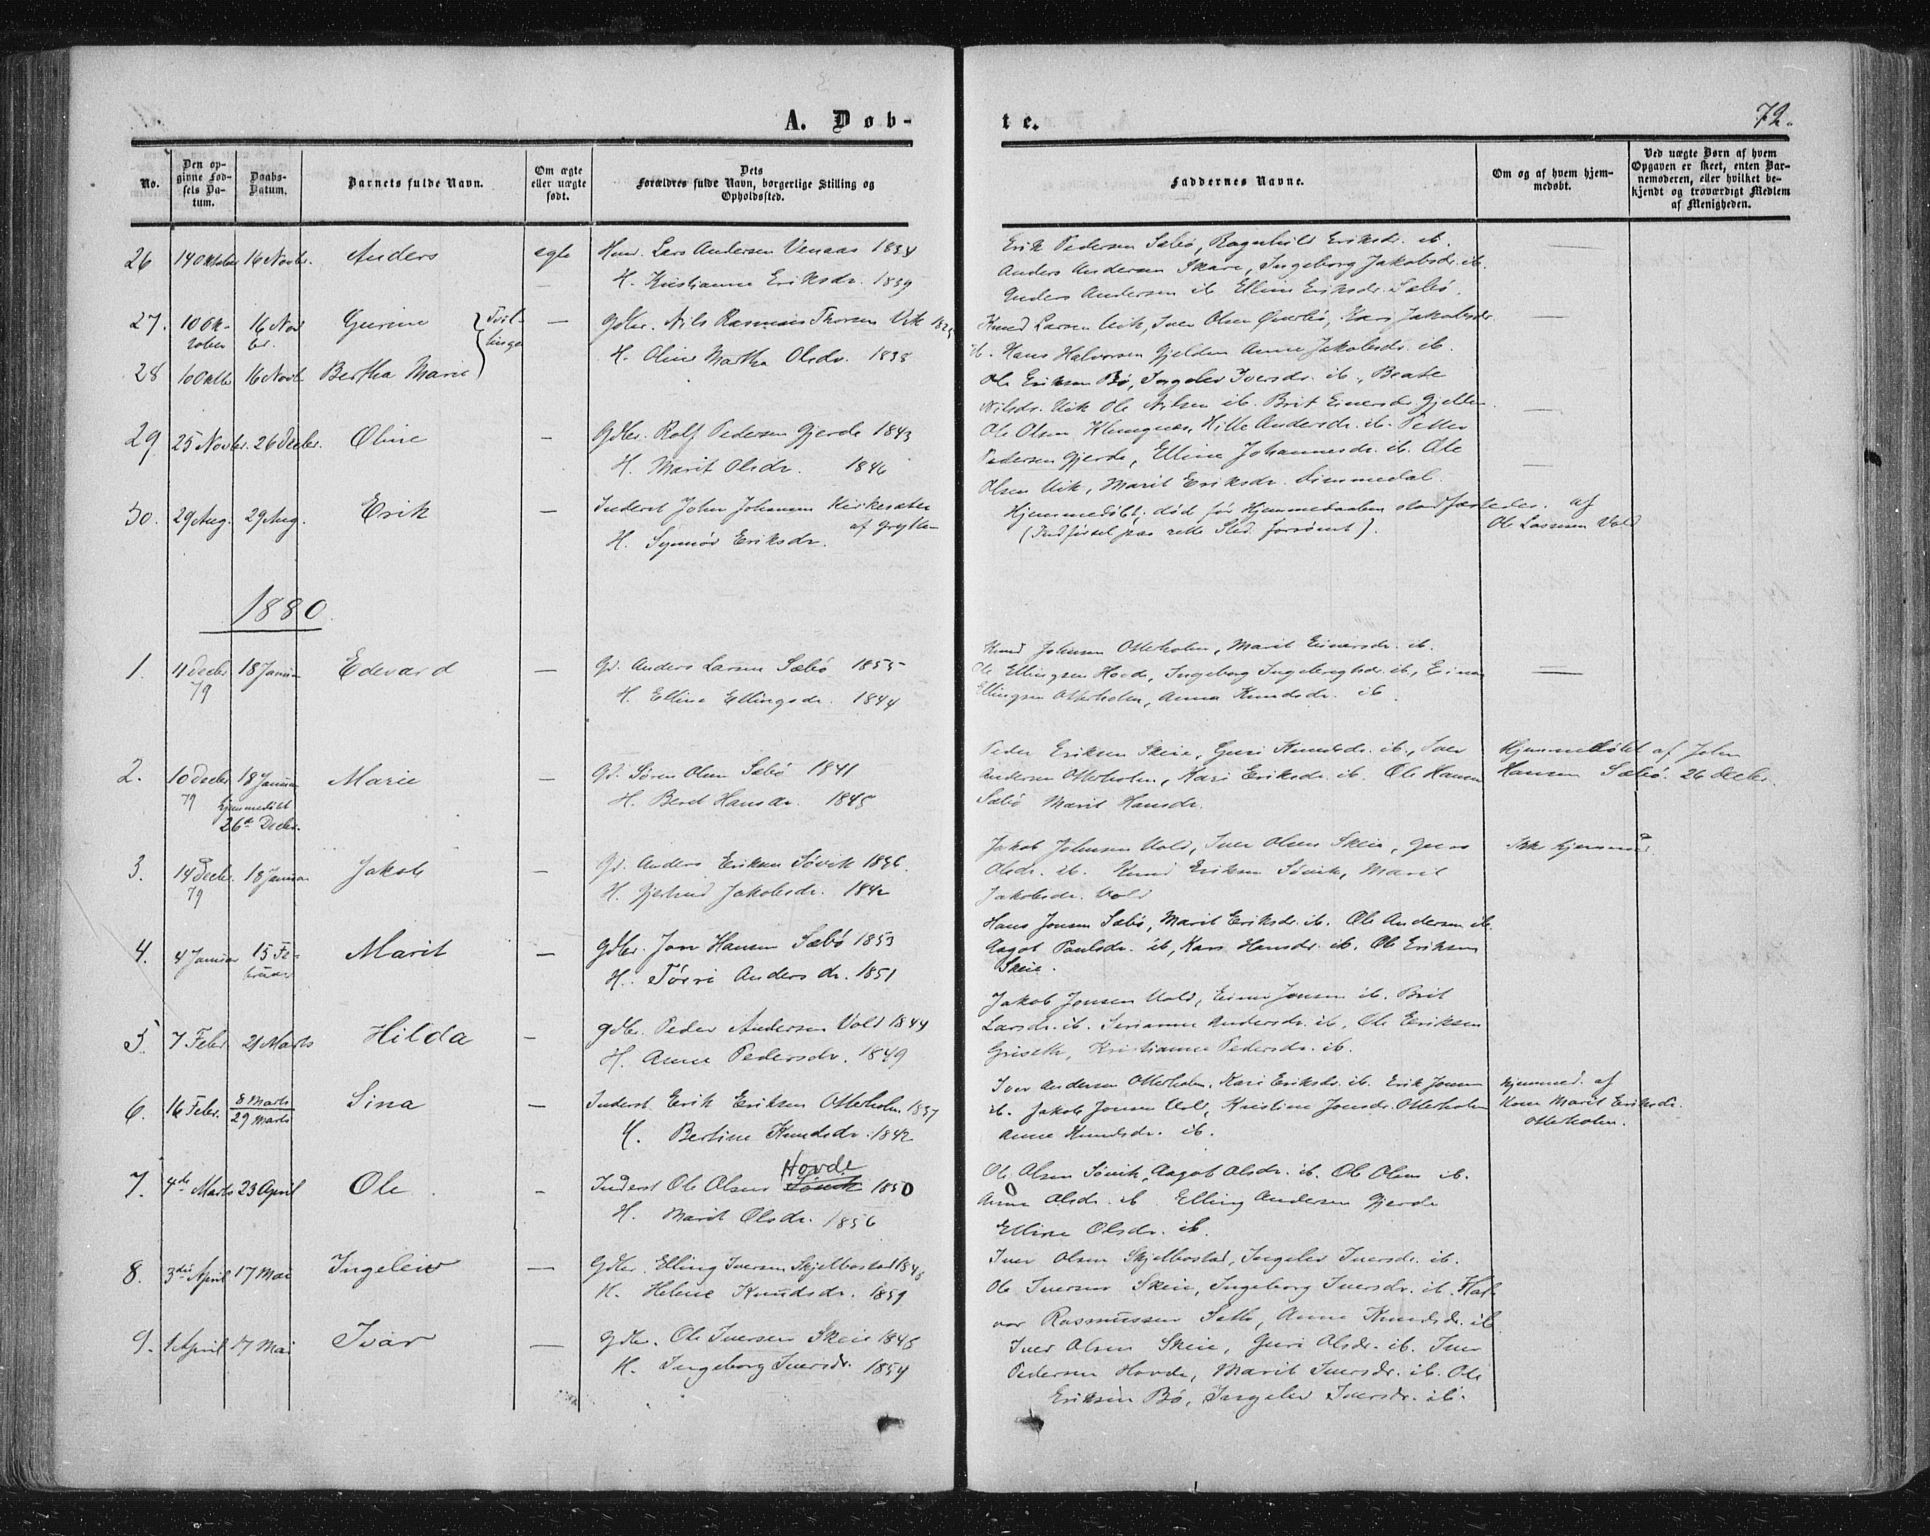 A. Døb-
te.
72.
No.
Den op-
givne Fød-
sels Da-
tum.
Daabs-
Datum.
Barnets fulde Navn.
Om ægte
eller uægte
født.
Dets
Forældres fulde Navn, borgerlige Stilling og
Opholdssted.
Faddernes Navne.
Om og af hvem hjem-
medøbt.
Ved uægte Børn af hvem
Opgaven er skeet, enten Bar-
nemoderen, eller hvilket be-
kjendt og troværdigt Medlem
af Menigheden.
26 14 Oktober 16 Novbr. Anders egte Lars Andersen Venaas 1834
H. Kristianne Eriksdr. 1839
Erik Pedersen Sæbø, Ragnhild Eriksdr. ib.
Anders Andersen Skare, Ingeborg Jakobsdr. ib.
Anders Andersen ib Elline Eriksdr. Sæbø.
27. 10 Ok-
tober 16 Nov
br. Gurine Tvil-
linger — Gdbr. Nils Rasmus Thorsen Vik
H. Oline Martha Olsdr. 1838
Knud Larsen Vik, Iver Olsen Kari Jakobsdr.
ib. Hans Halvorsen Gjelden Anne Jakobsdr. ib.
28 10 Oktb 16 Novb. Bertha Marie
Ole Eriksen Bø, Ingelev Iversdr. ib., Beate
Nilsdr. Vik Ole Nilsen ib. Brit Einersdr.
29 25 Novbr. 26 Decbr. Oline — Gdbr. Rolf Pedersen Gjerde 1843
H. Marit Olsdr. 1846
Ole Olsen Andersdr. ib. Petter
Pedersen Gjerde, Elline Johannesdr. ib. Ole
Olsen Vik, Marit Eriksdr.
30. 29 Aug. 29 Aug. Erik — Inderst John Johansen Kirkesæter
af Grytten
H. Synnøv Eriksdr.
Hjemmedøbt, død før Hjemmedaaben stadfæstedes.
(Indførsel paa rette Sted forsømt).
af
Ole Larsen Vold
1880
1. 11 Decbr 18 Januar Edevard — Gd. Anders Larsen Sæbø 1855
79
H. Elline Ellingsdr. 1844
Knud Johnsen Otterholm, Marit Einersdr. ib.
Ole Ellingsen Hovde, Ingeborg Ingebrigtsdr. ib., Einer
Ellingsen Otterholm, Anna Knudsdr. ib.
2. 10 Decbr 18 Januar Marie — Gd. Søren Olsen Sæbø 1841
79 hjemmedøbt
26de Decbr.
H. Beret Hansdr. 1845
Peder Eriksen Skeie, Guri Knudsdr. ib., Iver
Andersen Otterholm, Kari Eriksdr. ib. Ole Hansen
Sæbø Marit Hansdr.
Hjemmedøbt af John
Hansen Sæbø. 26 Decbr.
3. 14 Decbr. 18 Januar Jakob — Gd. Anders Eriksen Søvik 1836
79
H. Gjertrud Jakobsdr. 1842
Jakob Johnsen Vold, Iver Olsen Skeie, Guri
Olsdr. ib. Knud Eriksen Søvik, Marit
Jakobsdr. Vold
Ikke hjemmed
4. 4 Januar 15 Fe-
bruar Marit — Gdbr. Jon Hansen Sæbø 1853
H. Tørri Andersdr. 1851
Hans Jonsen Sæbø, Marit Eriksdr. ib. Ole Andersen ib
Aagot Paulsdr. ib, Kari Hansdr. ib. Ole Eriksen
Skeie.
5. 7 Febr 21 Marts Hilda — gdbr. Peder Andersen Vold 1844
H. Anne Pedersdr. 1849
Jakob Jonsen Vold, Einer Jonsen ib. Brit
Larsdr. ib. Serianne Andersdr. ib, Ole Eriksen
Griseth, Kristianne Pedersdr. ib.
6. 16 Febr. 8 Marts
29 Marts Sina — Inderst Erik Eriksen Otterholm 1837
H. Bertine Knudsdr. 1842
Iver Andersen Otterholm, Kari Eriksdr. ib. Erik Jonsen
ib. Jakob Jonsen Vold, Kristine Jonsdr. Otterholm
Anne Knudsdr. ib.
hjemmed. af
Kone Marit Eriksdr.
Otterholm.
7. 4de Marts 23 April Ole. - Inderst Ole Olsen Søvik Hovde 1850
H. Marit Olsdr. 1856
Ole Olsen Søvik, Aagot Olsdr. ib Ole Olsen ib.
Anne Olsdr. ib Elling Andersen Gjerde
Elline Olsdr. ib.
8. 3die April 17 Mai Ingeleiv — Gdbr. Elling Iversen Skjelbostad 1845
H. Helene Knudsdr. 1859
Iver Olsen Skjelbostad, Ingelev Iversdr. ib.
Ole Iversen Skeie, Ingeborg Iversdr. ib. Hal-
vor Rasmussen Anne Knudsdr. ib.
9. 1 April 17 Mai Ivar — Gdbr. Ole Iversen Skeie 1845
H. Ingeborg Iversdr. 1854
Iver Olsen Skeie, Guri Olsdr. ib. Iver
Pedersen Hovde, Marit Iversdr. ib. Ole
Eriksen Bø, Ingelev Iversdr. ib.